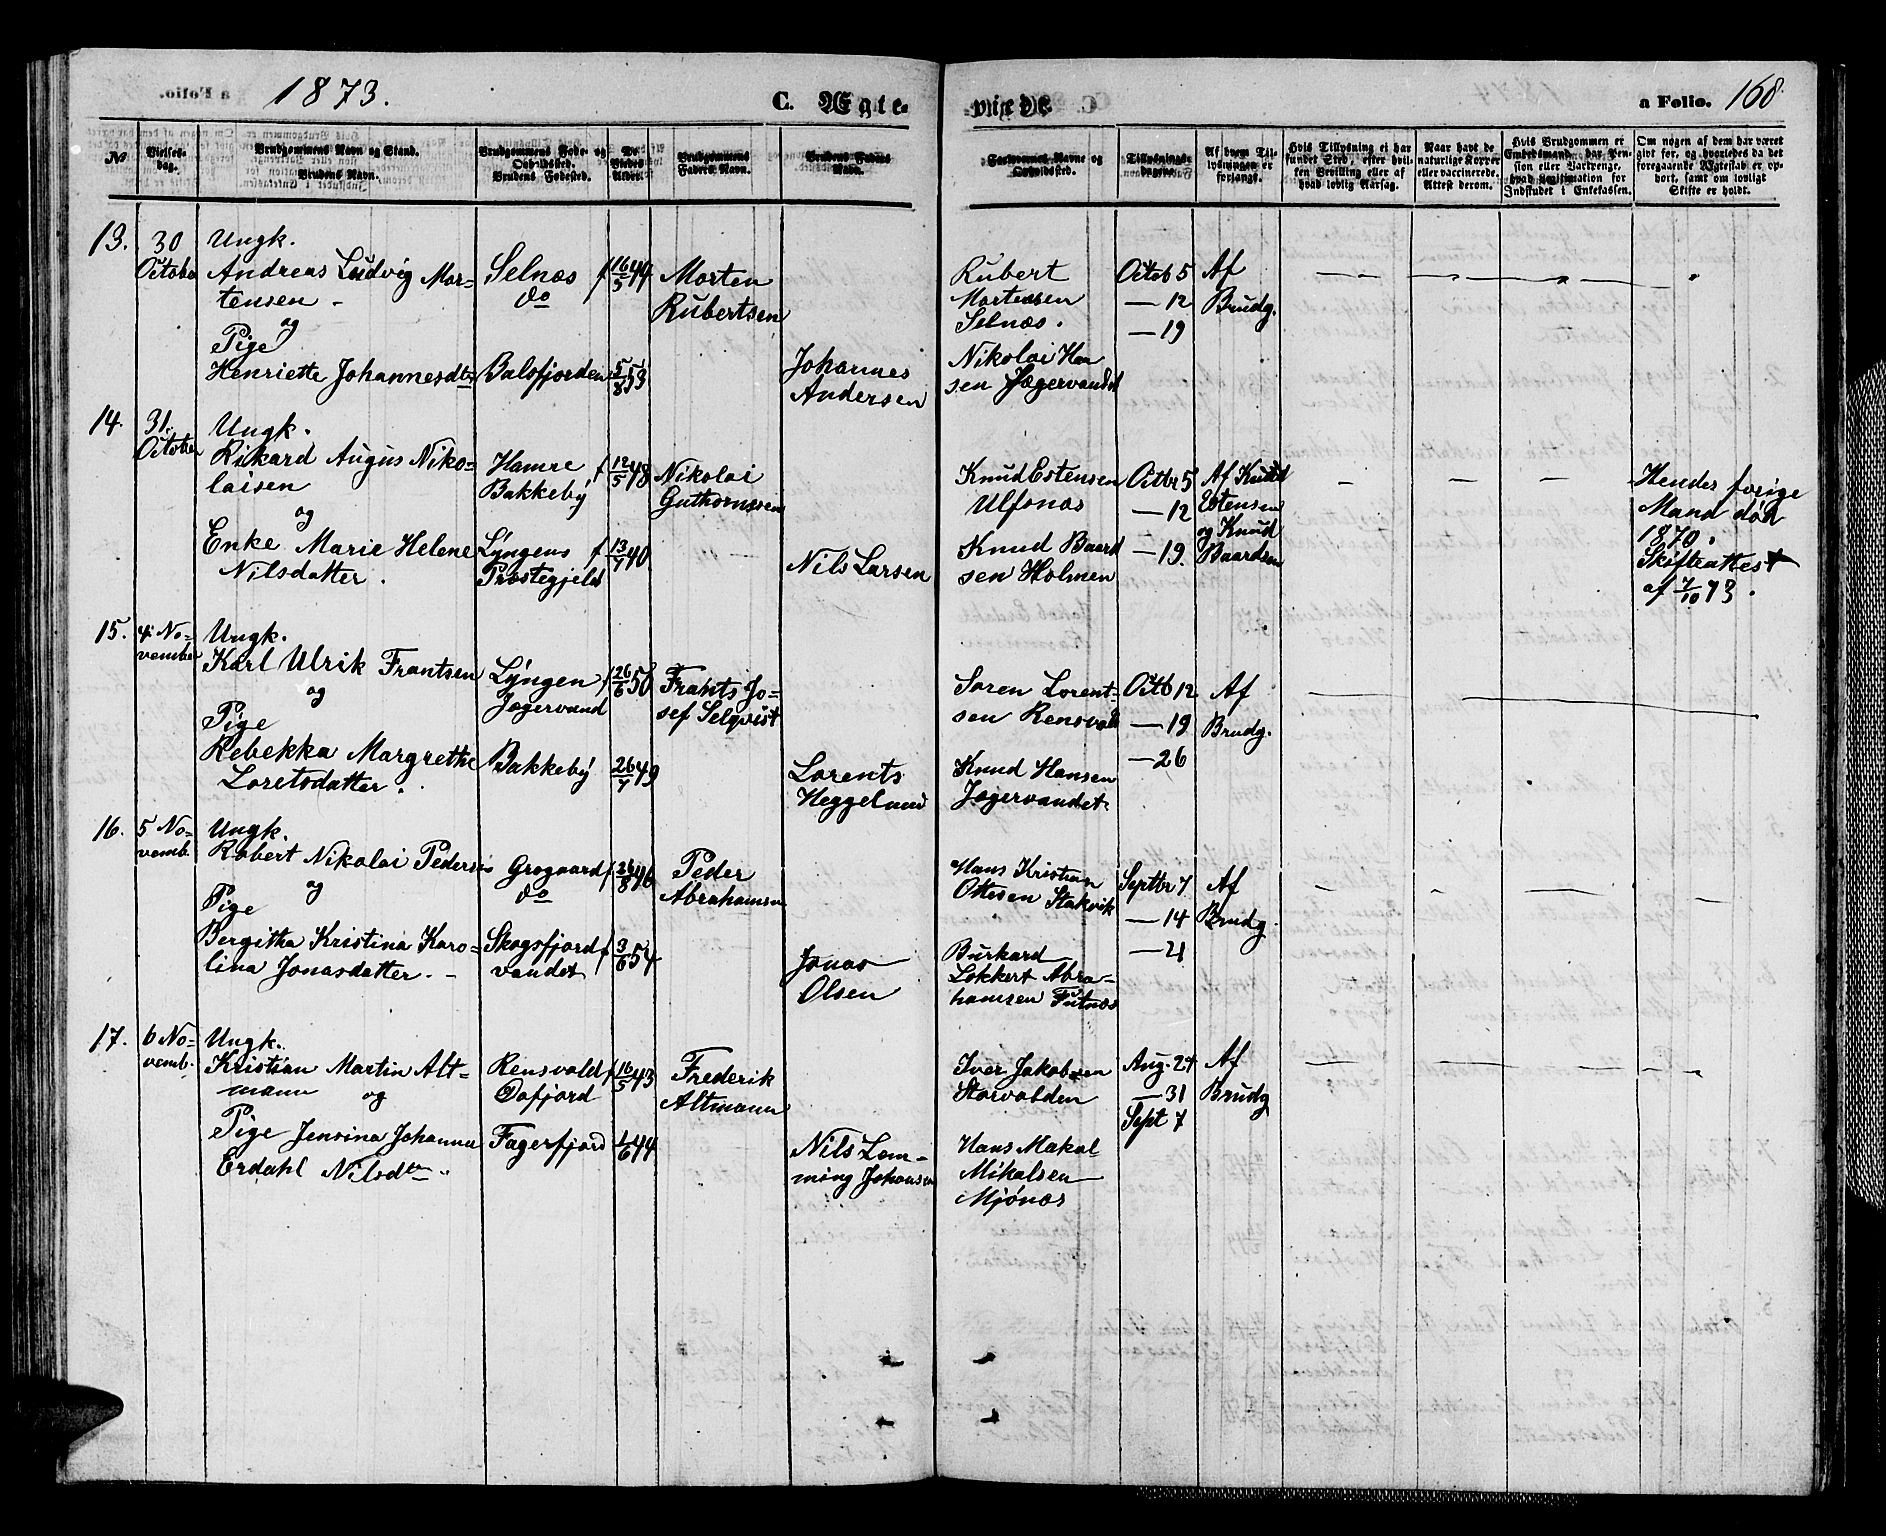 1873.
C. Ægte-
viede.
a Folio. 168.
No
Vielses-
dag.
Brudgommens Navn og Stand.
Brudens Navn.
Brudgommens Føde- og
Opholdssted.
Brudens Fødested.
De
Viedes
Alder.
Brudgommens
Faders Navn.
Brudens Faders
Navn.
Forlovernes Navne og
Opholdssted.
Tillysnings-
dagene.
Af hvem Til-
lysningen er
forlangt.
Hvis Tillysning ei har
fundet Sted, efter hvil-
ken Bevilling eller af
hvad lovlig Aarsag.
Naar havt de
naturlige Kopper
eller vaccinerede.
Attest derom.
Hvis Brudgommen er
Embedsmand, har Pen-
sion eller Vartpenge,
hvad Legitimation for
Indskudet i Enkekassen.
Om nogen af dem har været
gift før, og hvorledes da det
foregaaende Ægteskab er op-
hørt, samt om lovligt
Skifte er holdt.
13.
30
Octobe
Ungk.
Andreas Ludvig Mor-
tensen -
og
Pige
Henriette Johannesdtr
Selnæs
do
Balsfjorden
f 16/5 44
5/8 53
Morten
Rubertsen
Johannes
Andersen
Rubert
Mortensen
Selnæs.
Nikolai Han
sen Jægervandet
Octob 5
— 12
— 19
Af
Brudg.
14.
31.
October
Ungk.
Rikard Augus Niko-
laisen
og
Enke Marie Helene
Nilsdatter.
Hamre
Bakkeby
Lyngens
Præstegjeld
f 12/5 48
f 13/7 40
Nikolai
Guthormsen
Nils Larsen
Knud Estensen
Ulfsnæs
Knud Baard
sen Holmen
Octbr 5
— 12
— 19.
Af Knud
Estensen
og Knud
Baardsen
Hendes forige
Mand død
1870.
Skifteattest
af 7/10 73.
15.
4 No-
vember
Ungk.
Karl Ulrik Frantsen
og
Pige
Rebekka Margrethe
Loretsdatter.
Lyngen
Jægervand
Bakkeby
f 26/6 50
26/7 49
Frants Jo-
sef Selqvist
Lorents
Heggelund
Søren Lorent-
sen Rensvold
Knud Hansen
Jægervandet.
Octb 12
— 19
— 26
Af
Brudg.
16.
5 No-
vemb.
Ungk.
Robert Nikolai Pedersen
og
Pige
Bergitha Kristina Karo-
lina Jonasdatter. -
Grøgaard
do
Skogsfjord
vandet
f 26/8 46
f 3/6 54
Peder
Abrahamsen
Jonas
Olsen
Hans Kristian
Ottesen Stakvik
Burkard
Løkkert Abra-
hamsen Futnæs
Septbr 7
— 14
— 21
Af
Brudg.
17.
6 No-
vemb.
Ungk.
Kristian Martin Alt-
mann og
Pige Jensina Johanna
Erdahl Nilsdtr.
Rensvold
Oxfjord
Fagerfjord
f 16/5 43
1/6 44
Frederik
Altmann
Nils Lem-
ming Johansen
Iver Jakobsen
Storvolden
Hans Makal
Mikalsen
Mjønæs
Aug. 24
— 31
Sept 7
Af
Brudg